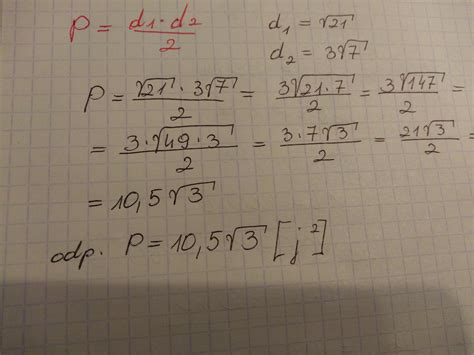 P = d₁·d₂/2    d₁ = √21
d₂ = 3√7
P = √21 · 3√7/2 = 3√21·7/2 = 3√147/2 =
= 3·√49·3/2 = 3·7√3/2 = 21√3/2 =
= 10,5√3
odp. P = 10,5√3 [j²]